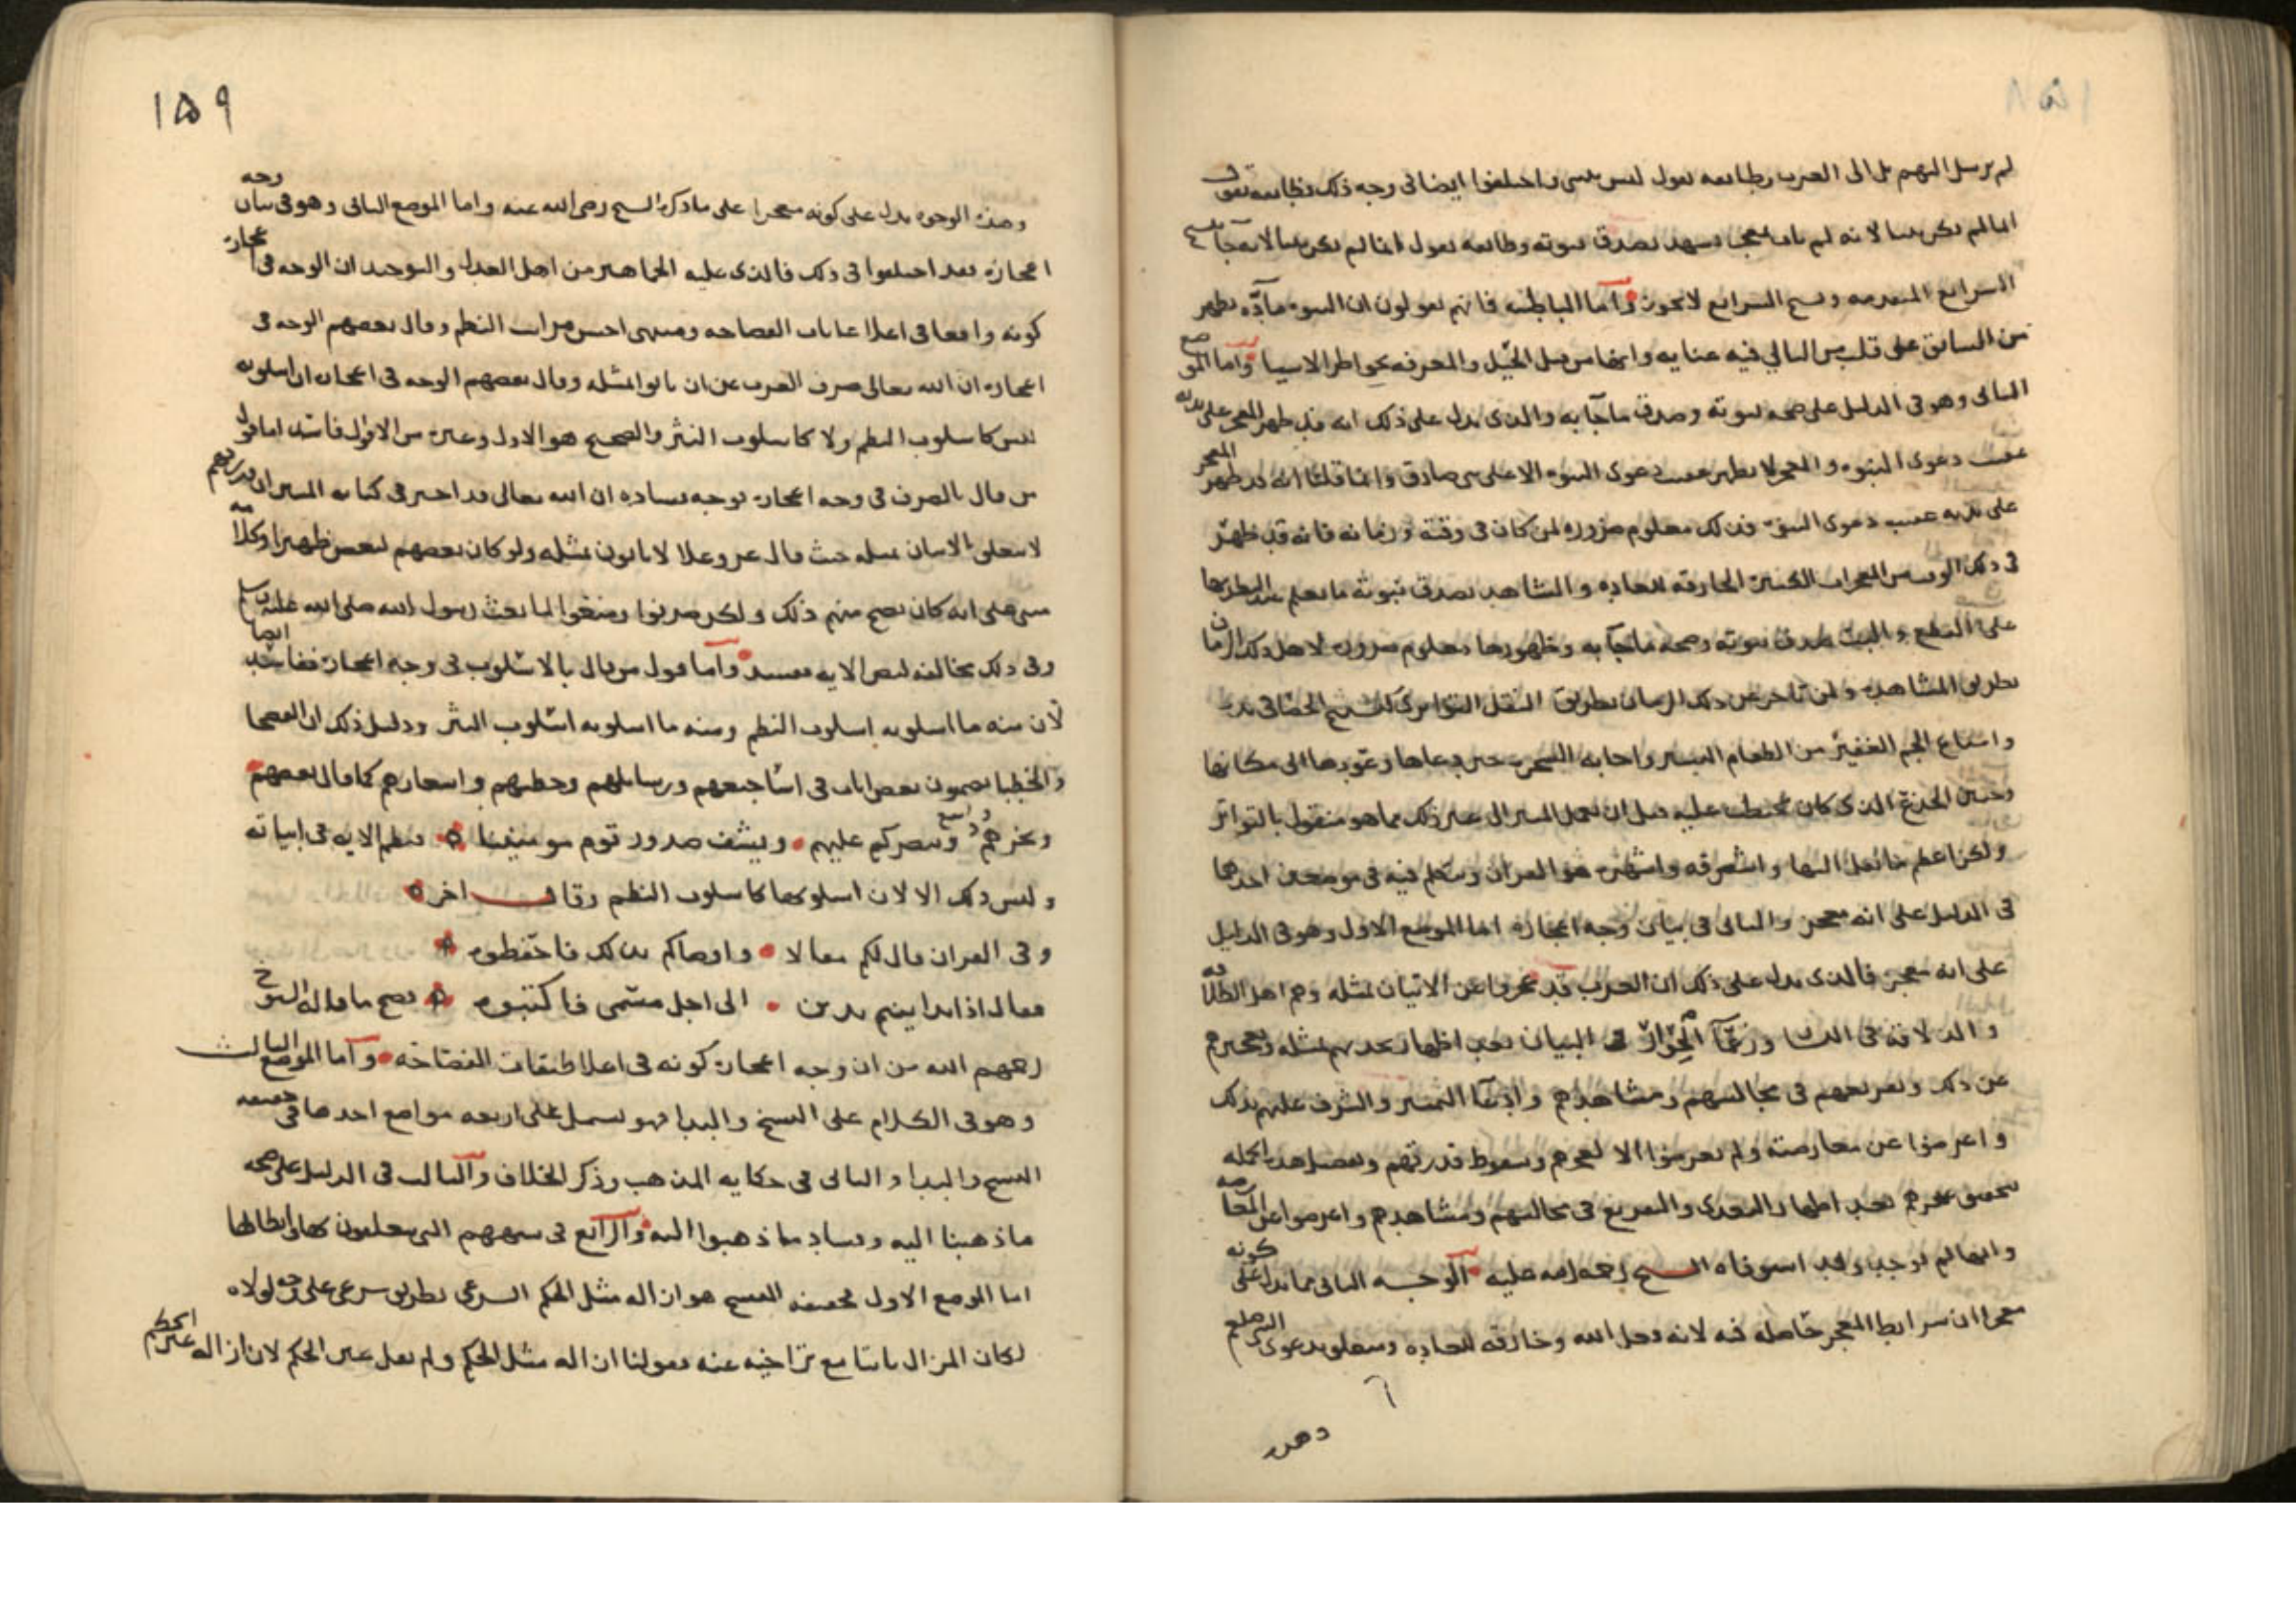 لم يرسل اليهم بل الى العرب وطايفه تقول ليس بنبي واختلفوا ايضا في وجه ذلك فطايفه تقول
انما لم يكن نبيا لانه لم يات بمعجز يشهد بصدق نبوته وطايفه تقول انما لم يكن نبيا لانه جا بنسخ
الشرايع المتقدمه ونسخ الشرايع لا يجوز واما الباطنيه فانهم يقولون ان النبوه مادّه تظهر
من السابق على قلب من التالي فيه عنايه وانها من قبيل التخيل والمعرفه بخواطر الاشيا واما الموضع
الثاني وهو في الدليل على صحه نبوته وصدق ما جآ به والذي يدل على ذلك انه قد ظهر المعجز على يديه
عقيب دعوى النبوه والمعجز لا يظهر عقيب دعوى النبوه الا على نبي صادق وانما قلنا انه قد ظهر المعجز
على يديه عقيب دعوى النبوّه فذلك معلوم ضروره لمن كان في وقته وزمانه فانه قد ظهر
في ذلك الوقت من المعجزات الكثيره الخارقه للعاده والشاهده بصدق نبوته ما يعلم عند النظر فيها
على القطع والبت صدق نبوته وصحه ما جآ به وظهورها معلوم ضروره لاهل ذلك الزمان
بطريق المشاهده ولمن تاخر عن ذلك الزمان بطريق النقل التواتري كتسبيح الحصا في يده
واشباع الجم الغفير من الطعام اليسير واجابه الشجره حين دعاها وعَودها الى مكانها
وحنين الجذع الذي كان يخطب عليه قبل ان يعمل المنبر الى غير ذلك مما هو منقول بالتواتر
ولكن اعظم ما نقل الينا واشرقه واشهره هو القران ونتكلم فيه في موضعين احدهما
في الدليل على انه معجز والثاني في بيان وجه اعجازه اما الموضع الاول وهو في الدليل
على انه معجز فالذي يدل على ذلك ان العرب قد عجزوا عن الاتيان بمثله وهم اهل الطلاقه
والذلاقه في البيان بعد اظهار تحديهم بمثله وتعجيزهم
عن ذلك وتقريعهم في مجالسهم ومشاهدهم وادعآ التميز والشرف عليهم بذلك
واعرضوا عن معارضته ولم يعرضوا الا لعجزهم وسقوط قدرتهم وتفصيل هذه الجمله
تحقيق عجزهم بعد اظهار التحدي والتقريع في مجالسهم ومشاهدهم واعرضوا عن المعارضه
وقد استوفاه الشيخ رحمه الله عليه الوجه الثاني مما يدل على كونه
معجزا ان شرايط المعجز حاصله فيه لانه فعل الله وخارقه للعاده ومتعلق بدعوى المدعي
وهذه
١٥٩
وهذه الوجوه تدل على كونه معجزا على ما ذكره الشيخ رضي الله عنه واما الموضع الثاني وهو في بيان وجه
اعجازه فقد اختلفوا في ذلك فالذي عليه الجماهير من اهل العدل والتوحيد ان الوجه في اعجازه
كونه واقعا في اعلا غايات الفصاحه ومنتهى احسن مراتب النظم وقال بعضهم الوجه في
اعجازه ان الله تعالى صرف العرب عن ان ياتوا بمثله وقال بعضهم الوجه في اعجازه ان اسلوبه
ليس كاسلوب النظم ولا كاسلوب النثر والصحيح هو الاول وغيره من الاقوال فاسد اما قول
من قال بالصرف في وجه اعجازه فوجه فساده ان الله تعالى قد اخبر في كتابه المبين ان قدرتهم
لا تتعلق بالاتيان بمثله حيث قال عز وعلا لا ياتون بمثله ولو كان بعضهم لبعض ظهيرا وكلامه
مبني على انه كان يصح منهم ذلك ولكن صرفوا ومنعوا لما بعث رسول الله صلى الله عليه وسلم
وفي ذلك مخالفه لنص الايه فيفسد واما قول من قال بالاسلوب في وجه اعجازه ففاسد ايضا
لان منه ما اسلوبه اسلوب النظم ومنه ما اسلوبه اسلوب النثر ودليل ذلك ان الفصحا
والخطبا يضمون بعض ايات في اساجيعهم ورسايلهم وخطبهم واشعارهم كما قال بعضهم
ويخزهم وينصركم عليهم ويشف صدور قوم مومنينا فنظم الايه في ابياته
وليس ذلك الا لان اسلوبها كاسلوب النظم وقال اخر
وفي القران قال لكم مقالا واوصاكم بذلك فاحفظوه
فقال اذا تداينتم بدين الى اجل مسمى فاكتبوه فصح ما قاله الشيوخ
رحمهم الله من ان وجه اعجازه كونه في اعلا طبقات الفصاحه واما الموضع الثالث
وهو في الكلام على النسخ والبدا فهو يشتمل على اربعه مواضع احدها في حقيقه
النسخ والبدا والثاني في حكايه المذهب وذكر الخلاف والثالث في الدليل على صحه
ما ذهبنا اليه وفساد ما ذهبوا اليه والرابع في شبههم التي يتعلقون بها وابطالها
اما الموضع الاول فحقيقه النسخ هو ازاله مثل الحكم الشرعي بطريق شرعي على وجه لولاه
لكان المزال ثابتا مع تراخيه عنه فقولنا ازاله مثل الحكم ولم نقل عين الحكم لان ازاله عين الحكم